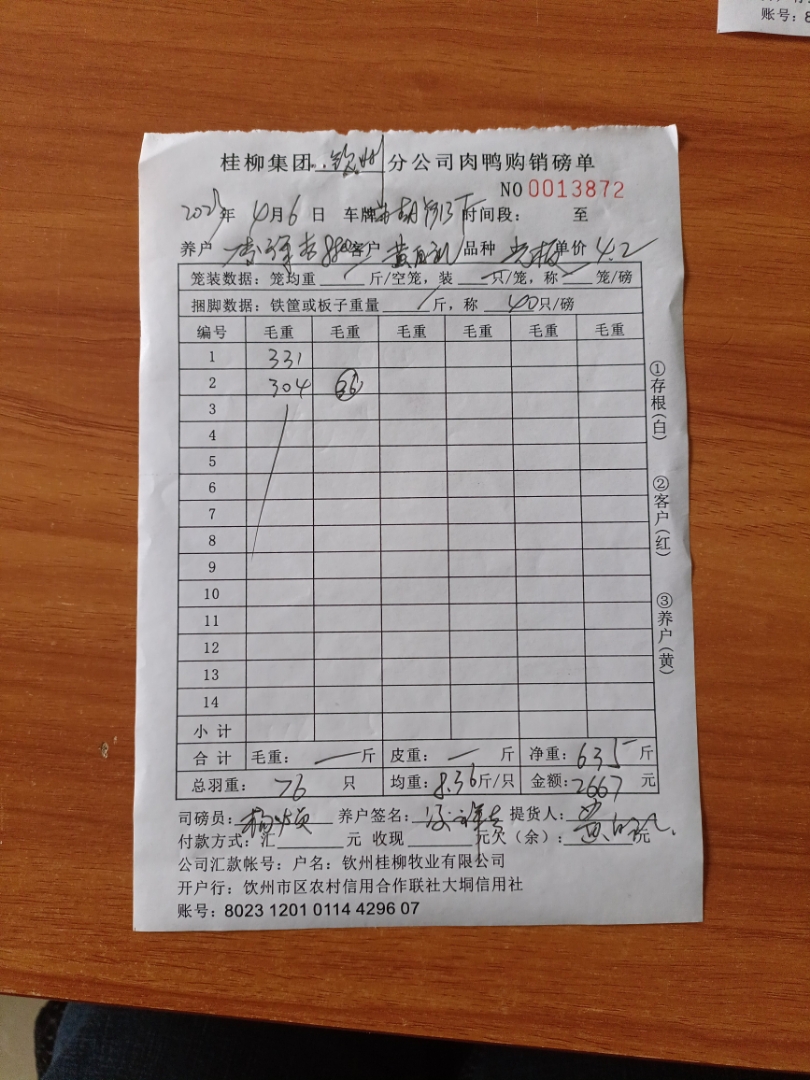 账号：8
桂柳集团 钦州 分公司肉鸭购销磅单
NO 0013872
年 4月6日 车牌 时间段： 至
养户 客户 品种 单价 4.2
笼装数据：笼均重 斤/空笼，装 只/笼，称 笼/磅
捆脚数据：铁筐或板子重量 斤，称 40只/磅
编号 毛重 毛重 毛重 毛重 毛重 毛重
1 331
2 304
3
4
5
6
7
8
9
10
11
12
13
14
小计
合计 毛重：一斤 皮重：一斤 净重：635斤
总羽重：76只 均重：8.36斤/只 金额：2667元
司磅员： 养户签名： 提货人：
付款方式：汇 元 收现 元欠（余）： 元
公司汇款帐号：户名：钦州桂柳牧业有限公司
开户行：钦州市区农村信用合作联社大垌信用社
账号：8023 1201 0114 4296 07
①存根（白）
②客户（红）
③养户（黄）